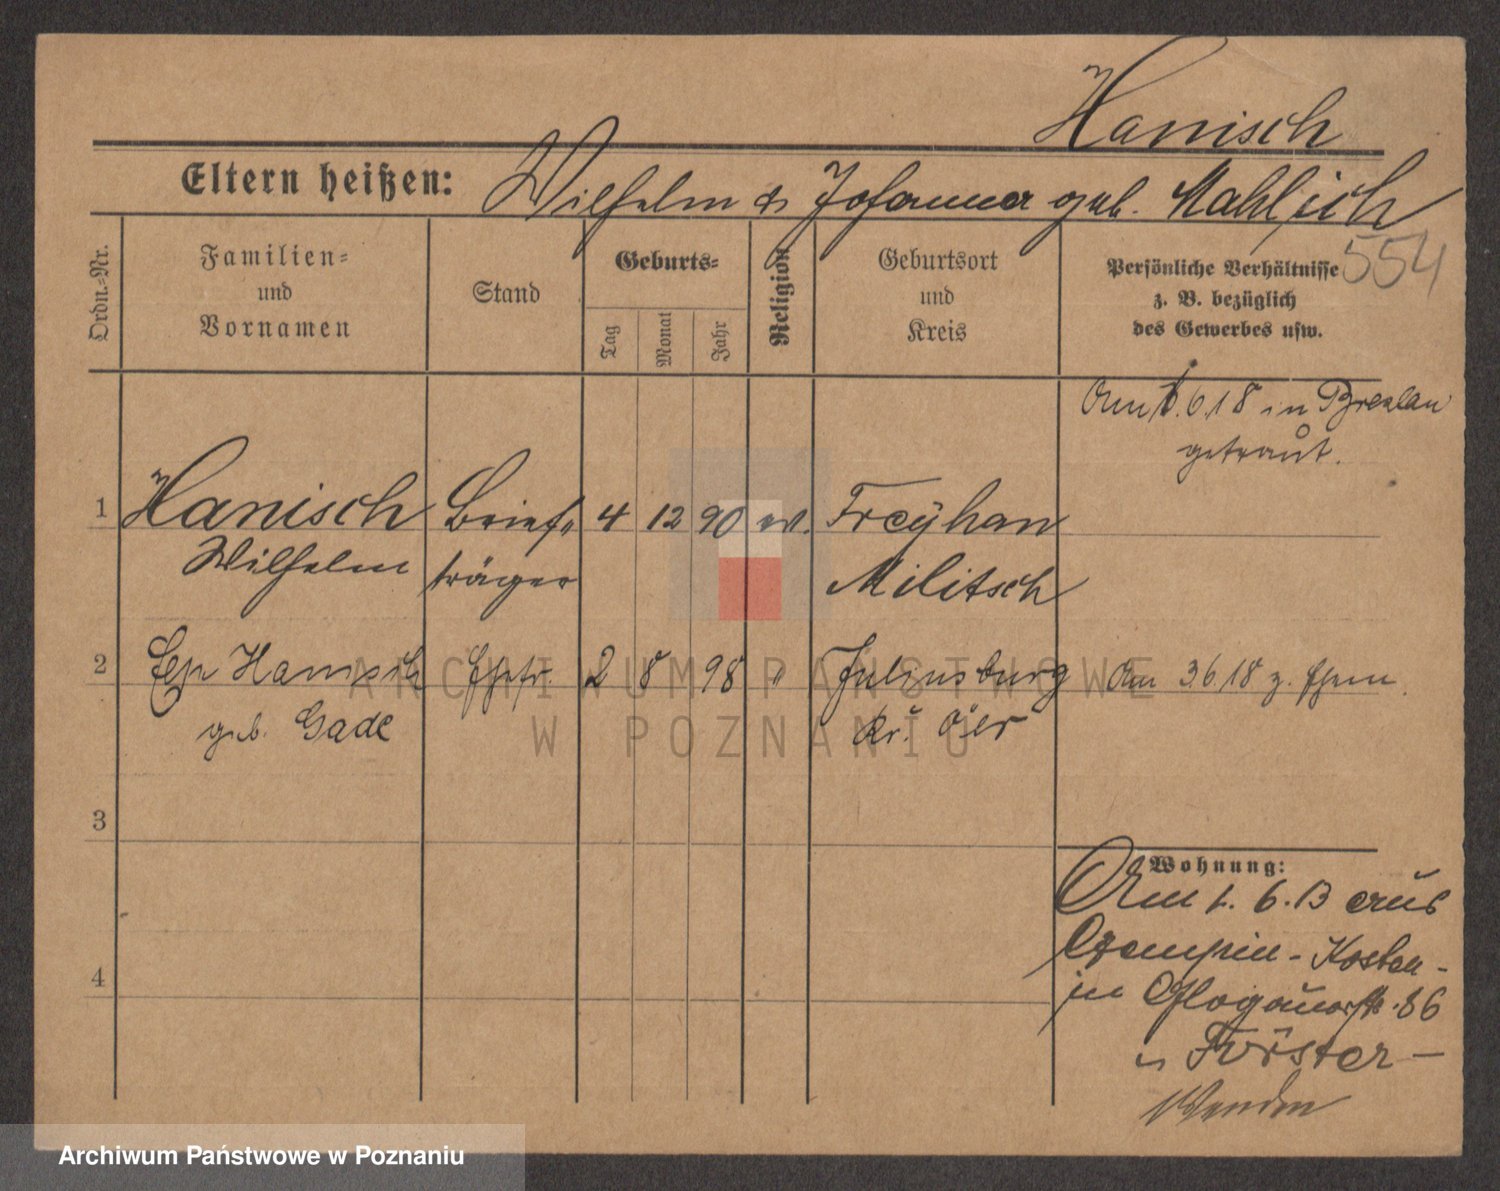 Hanisch
Eltern heißen: Wilhelm & Johanna geb. Mahlich
554
Ordn.-Nr.
Familien- und Vornamen
Stand
Geburts-
Tag
Monat
Jahr
Religion
Geburtsort und Kreis
Persönliche Verhältnisse
z. B. bezüglich
des Gewerbes usw.
6.18 in Breslau
getraut.
1 Hanisch Brief- 4 12 90 ev. Freyhan
Wilhelm träger Militsch
2 Hanisch Ehefr. 2 8 98 " Juliusburg Am 3.6.18 z. Ehem.
geb. Gade Kr. Öls
3
4
Wohnung:
Am 1. 6. 13 aus
Czempin - Kosten -
in Glogauerstr. 86
Förster -
Wenden
ARCHIWUM PAŃSTWOWE
W POZNANIU
Archiwum Państwowe w Poznaniu